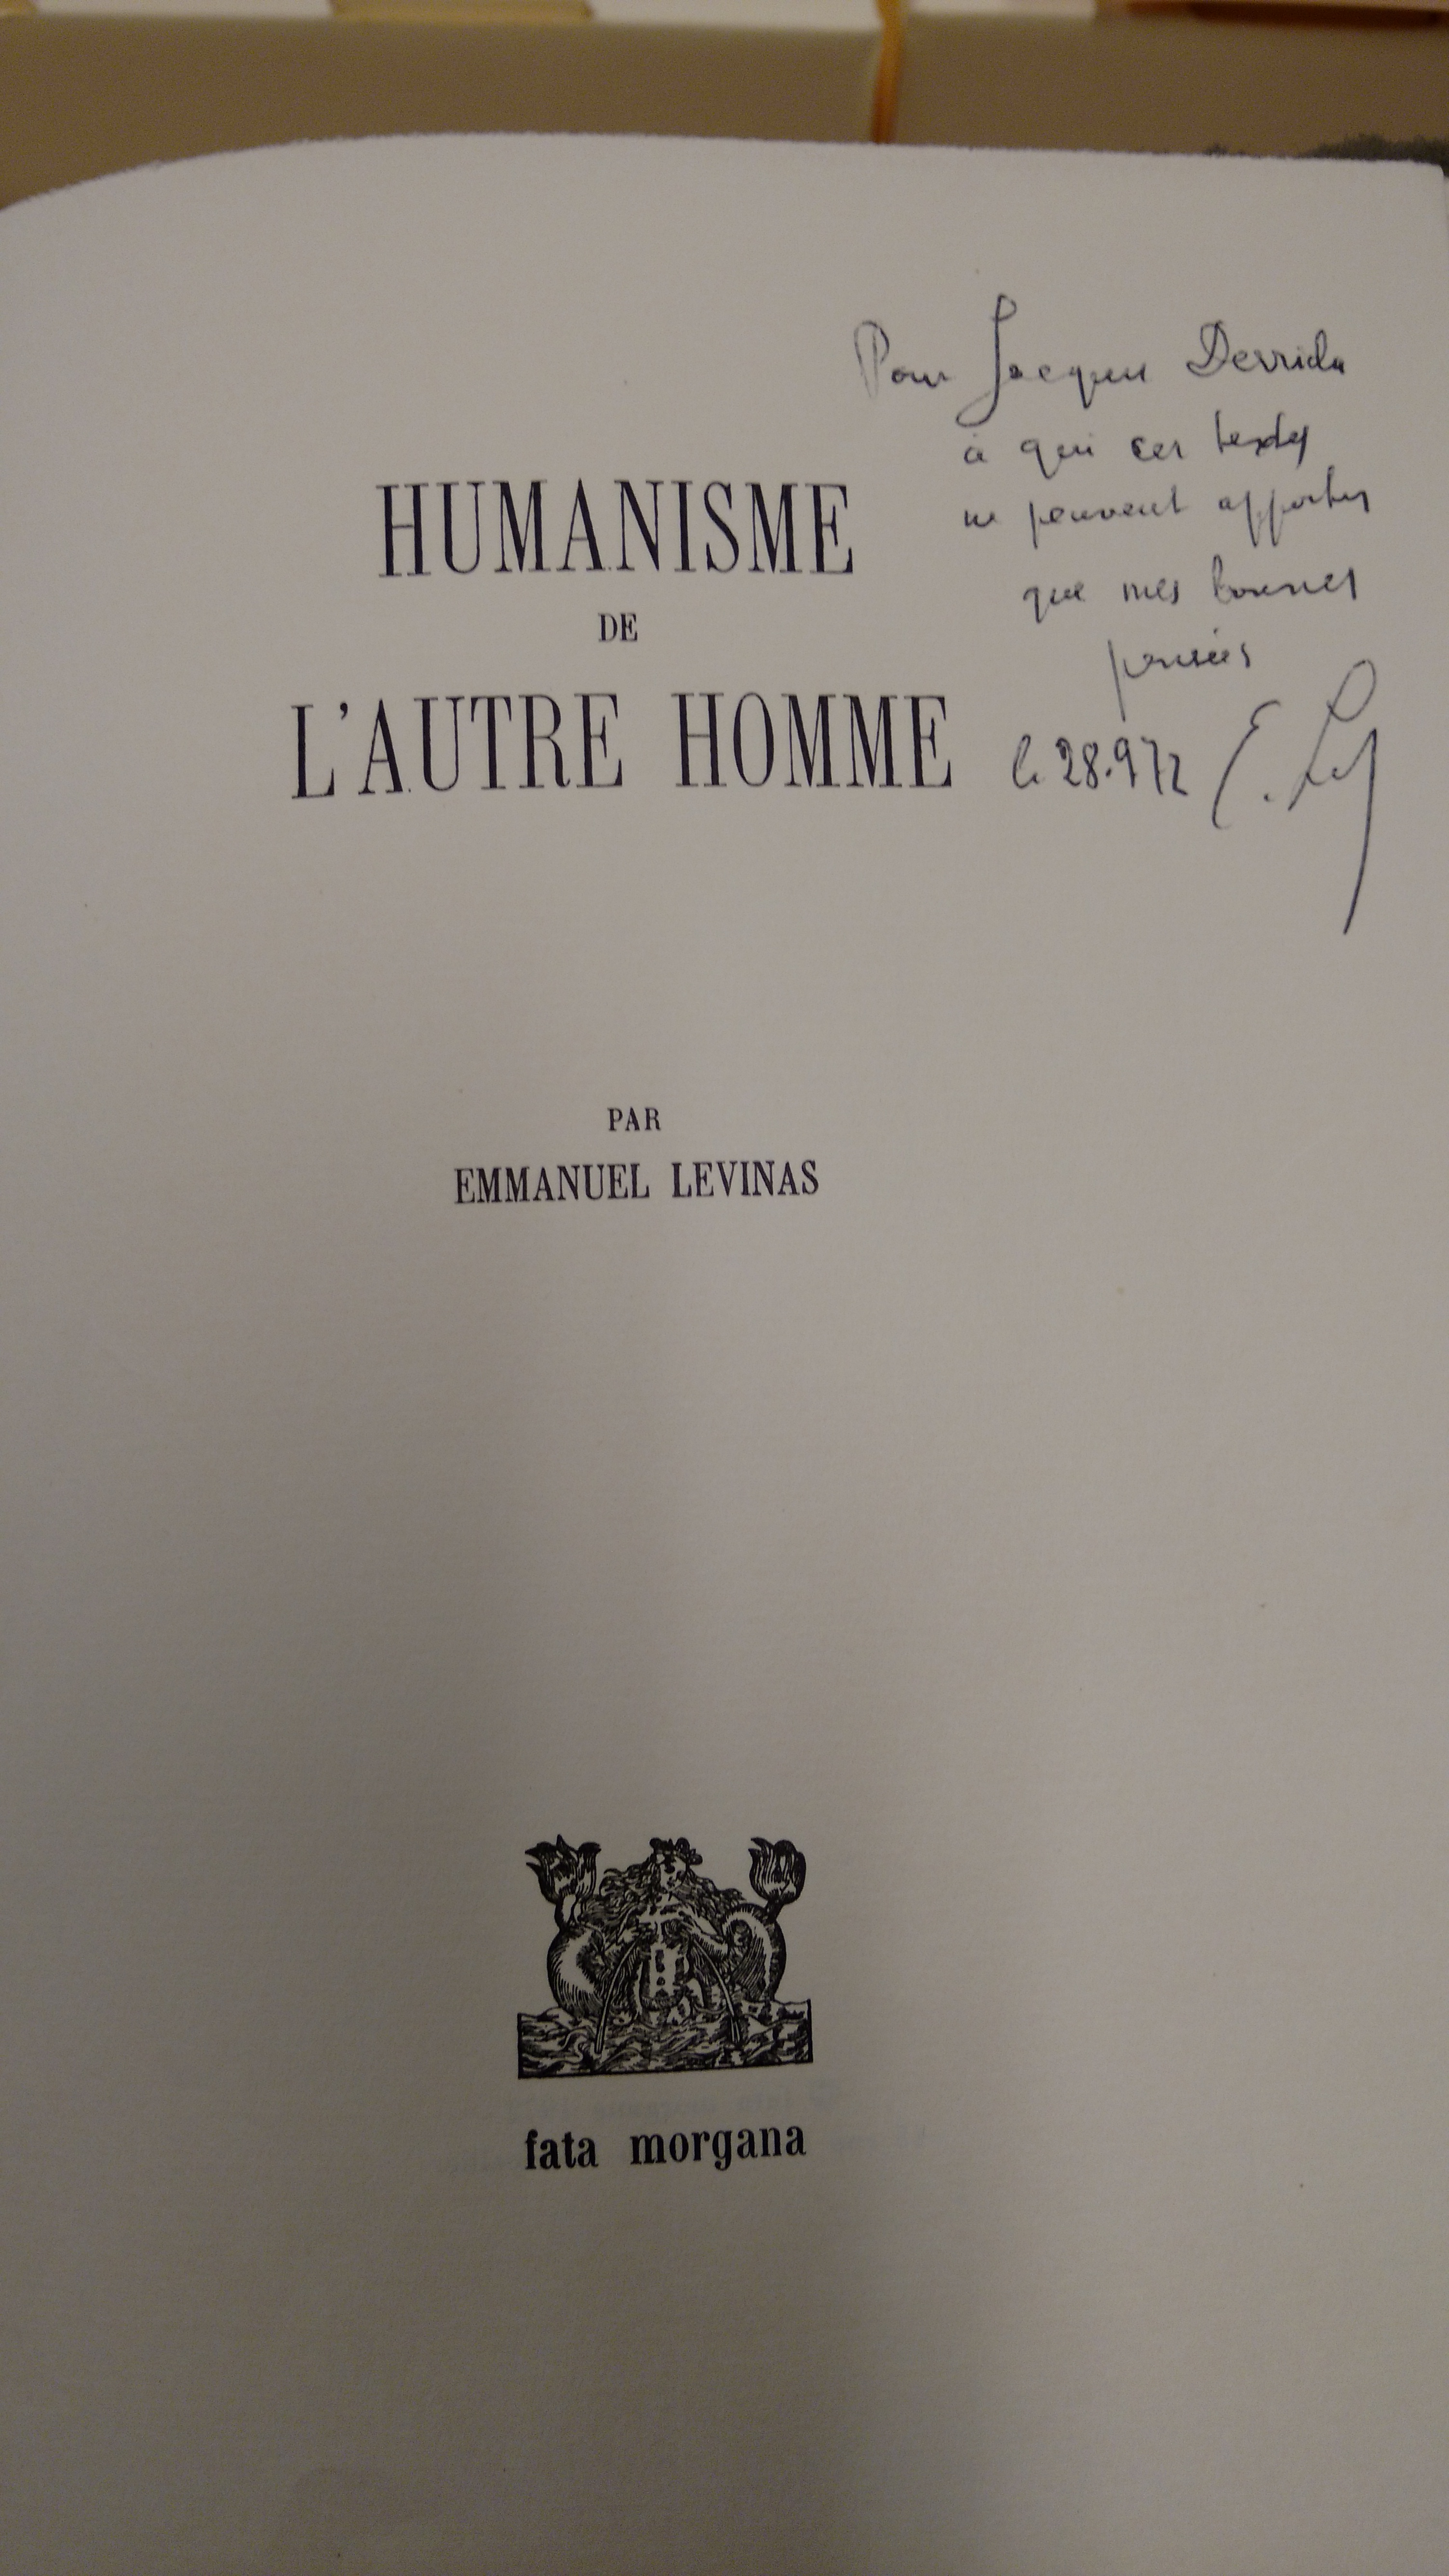 Pour Jacques Derrida
à qui ces textes
ne peuvent apporter
que mes bonnes
pensées
le 28.972 E. Lev
HUMANISME
DE
L'AUTRE HOMME
PAR
EMMANUEL LEVINAS
fata morgana